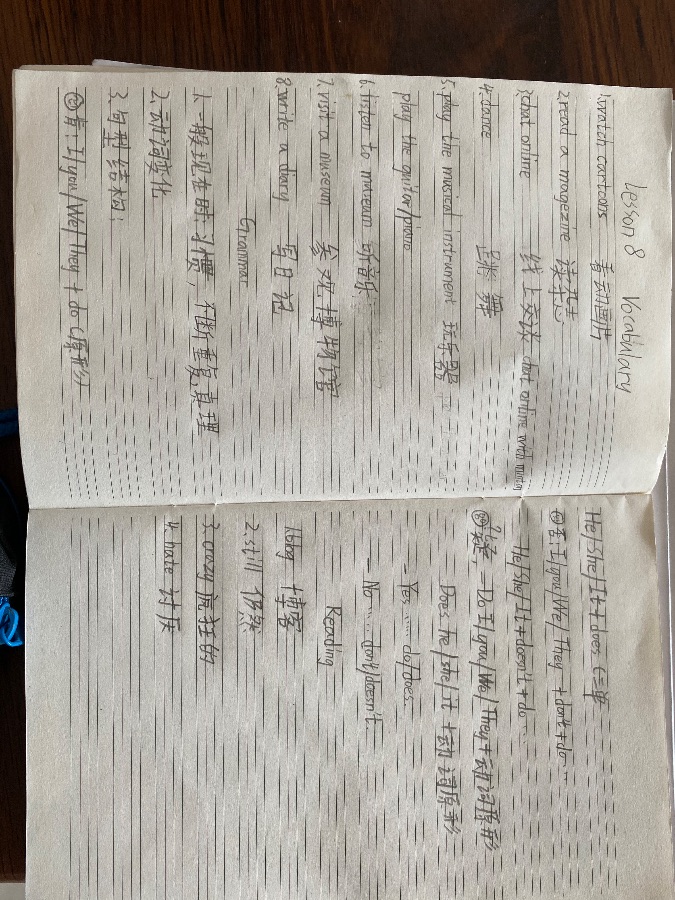 Lesson 8 Vocabulary
1.watch cartoons 看动画片
2.read a magezine 读杂志
3.chat online 线上交谈 chat online with
4.dance 跳舞
5.play the musical instrument 玩乐器
play the guitar/piano
6.listen to museum 听音乐
7.visit a museum 参观博物馆
8.write a diary 写日记
Grammar
1.一般现在时:习惯,不断重复,真理
2.动词变化
3.句型结构:
①肯:I/you/We/They + do (原形)
He/She/It + does (三单
②否:I/you/We/They + don't + do…
He/She/It + doesn't + do…
③疑,—Do I/you/We/They + 动词原形
Does he/she/it + 动词原形
—Yes, …… do/does.
—No …… don't/doesn't.
Reading
1.blog 博客
2.still 仍然
3.crazy 疯狂的
4.hate 讨厌